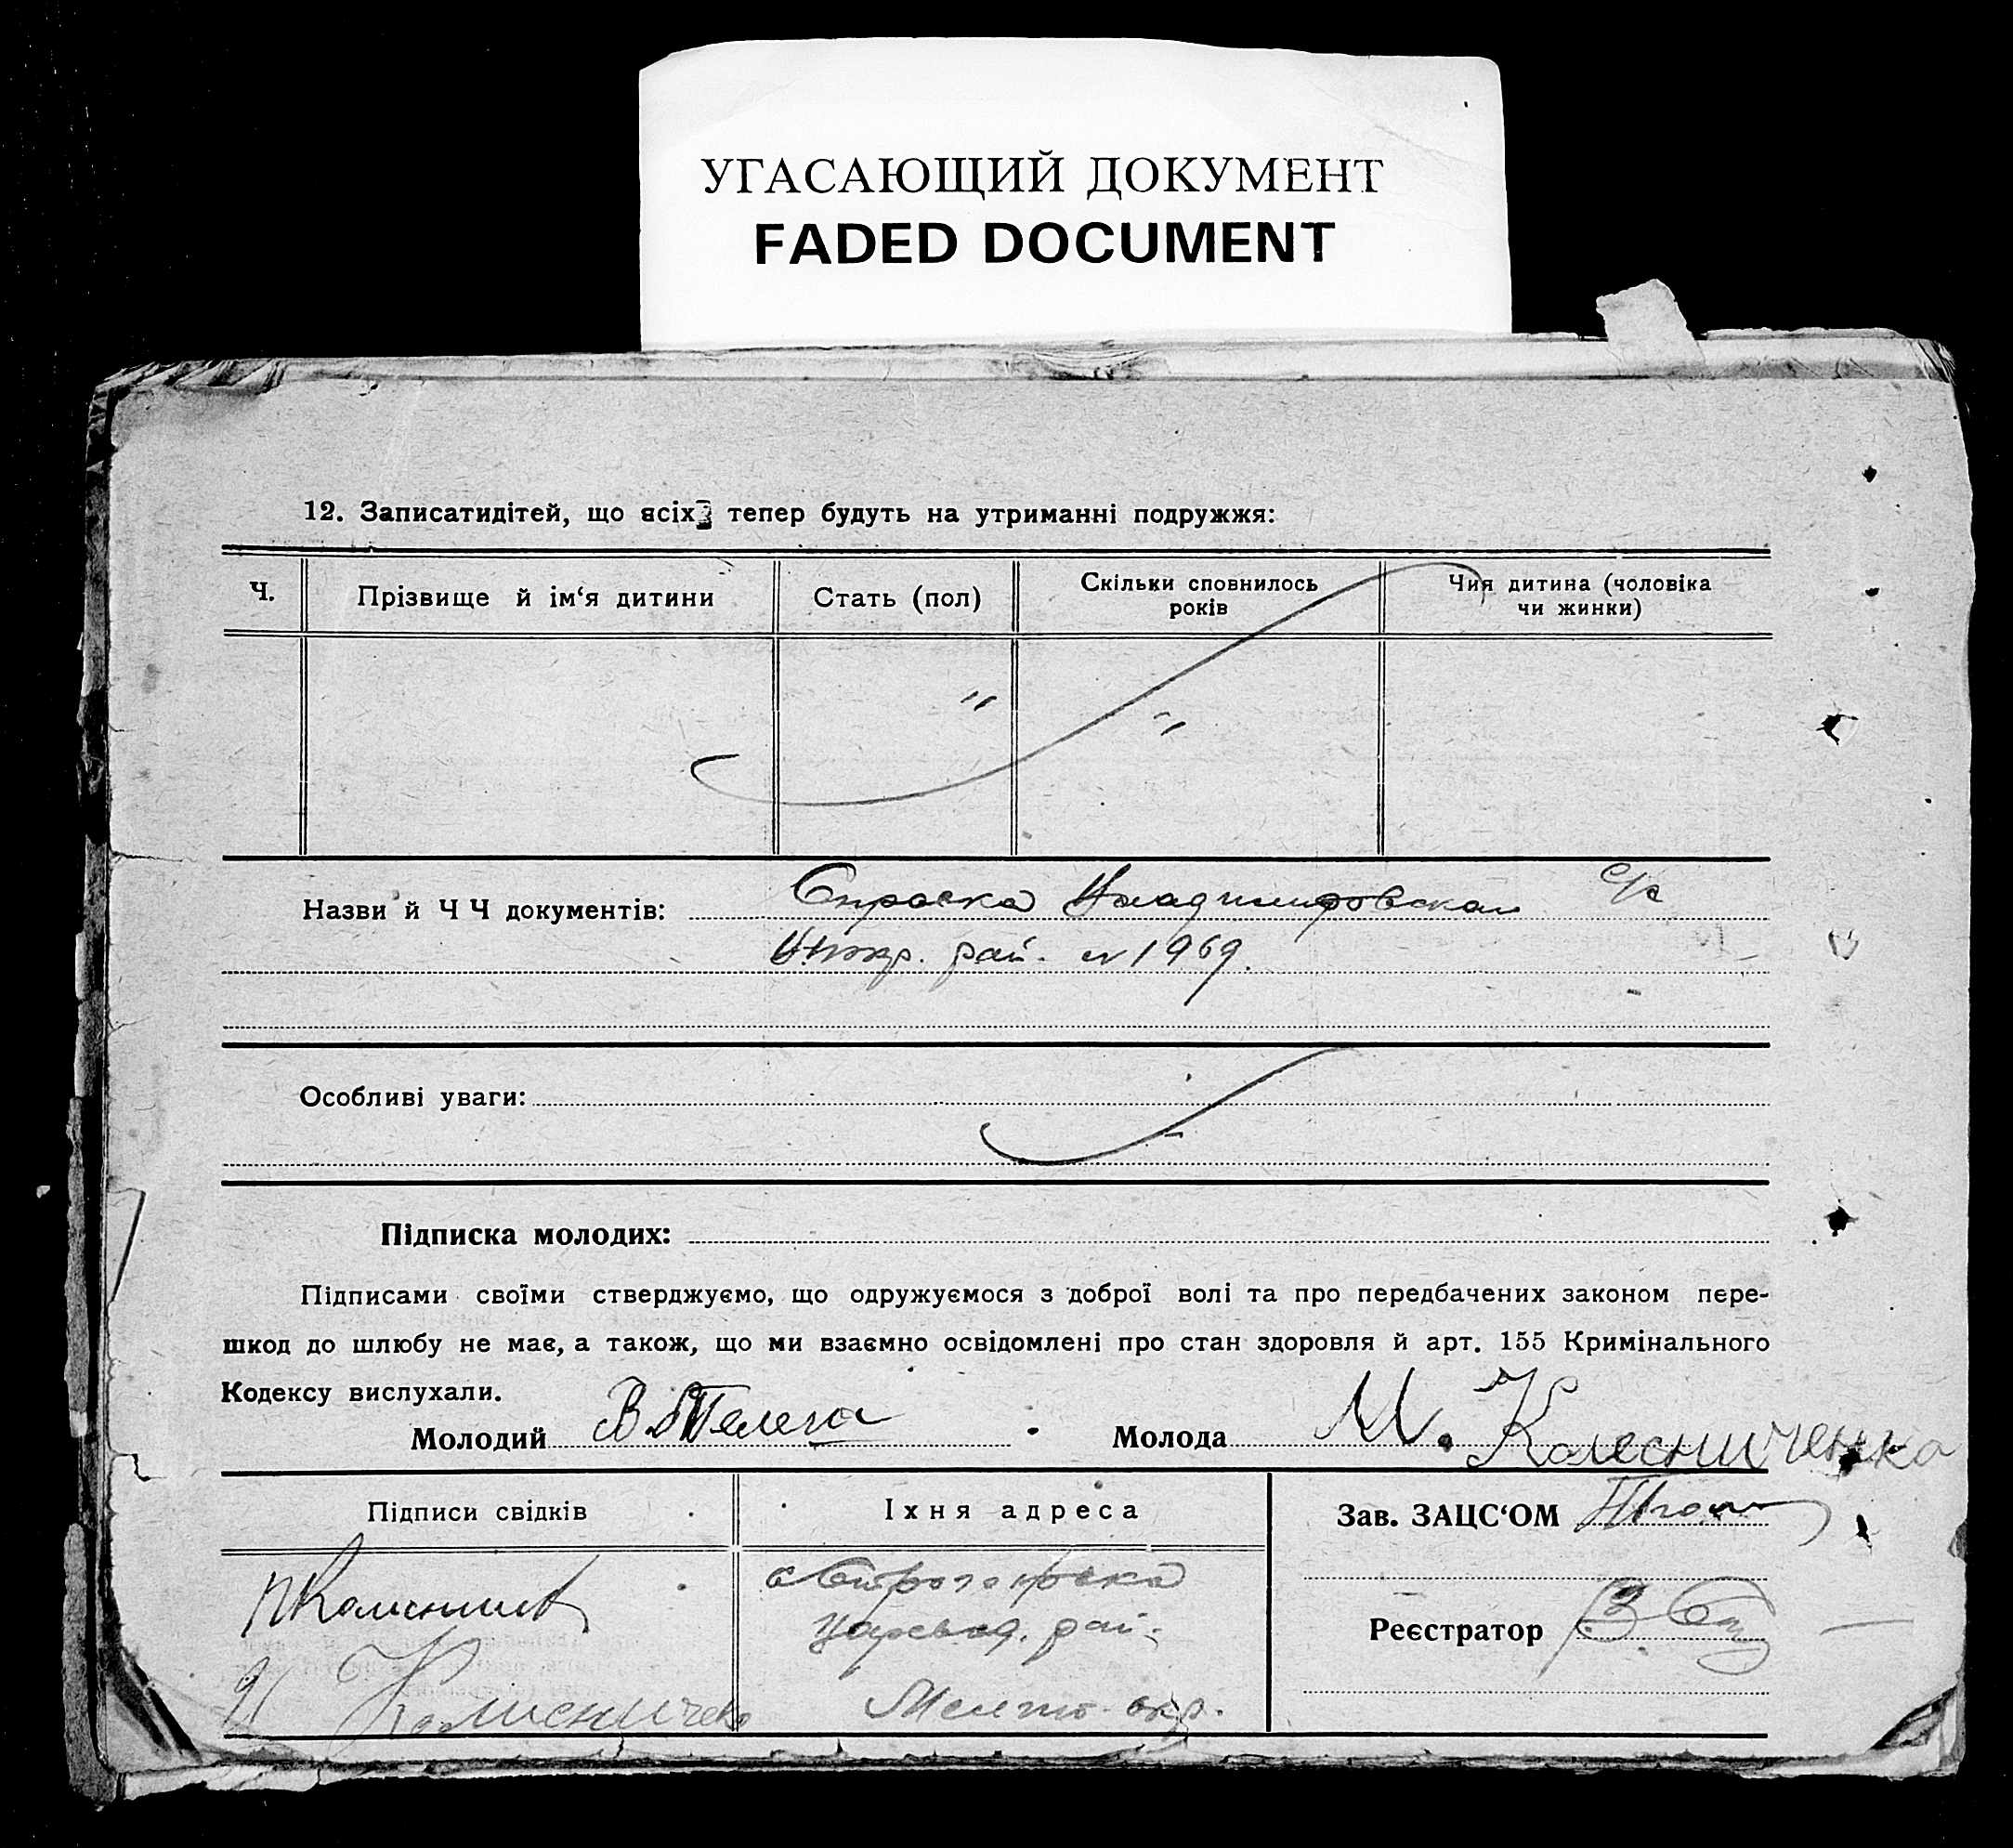 УГАСАЮЩИЙ ДОКУМЕНТ
FADED DOCUMENT
12. Записатидітей, що всіх тепер будуть на утриманні подружжя:
Ч. Прізвище й ім‘я дитини Стать (пол) Скільки сповнилось років Чия дитина (чоловіка чи жинки)
" "
Назви й Ч Ч документів: Справка Владимировская с/с
рай. № 1969.
Особливі уваги:
Підписка молодих:
Підписами своїми стверджуємо, що одружуємося з доброї волі та про передбачених законом пере-
шкод до шлюбу не має, а також, що ми взаємно освідомлені про стан здоровля й арт. 155 Кримінального
Кодексу вислухали.
Молодий В. Телега Молода М. Колесниченко
Підписи свідків Їхня адреса Зав. ЗАЦС‘ОМ
с Строгоновка
Царевод. рай.
Реєстратор
Мелито. окр.